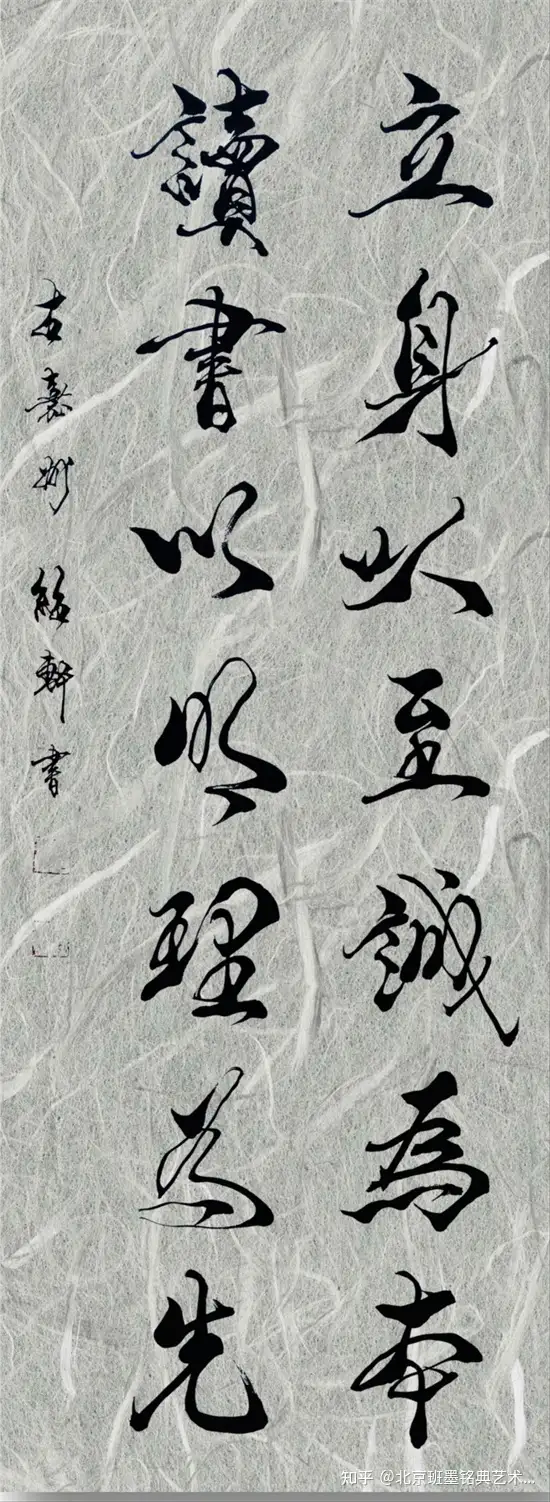 立身以至誠為本
讀書以明理為先
書
知乎 @北京班墨铭典艺术...